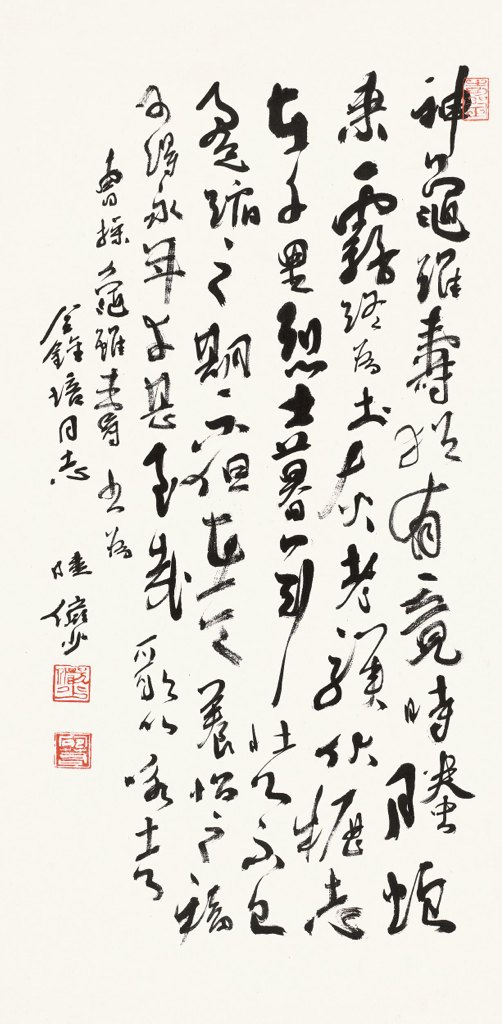 神龜雖壽猶有竟時騰蛇
乘霧終為土灰老驥伏櫪志
在千里烈士暮年壯心不已
盈縮之期不但在天養怡之福
可得永年幸甚至哉歌以詠志
曹操龜雖壽 書為
金培同志 陸儼少